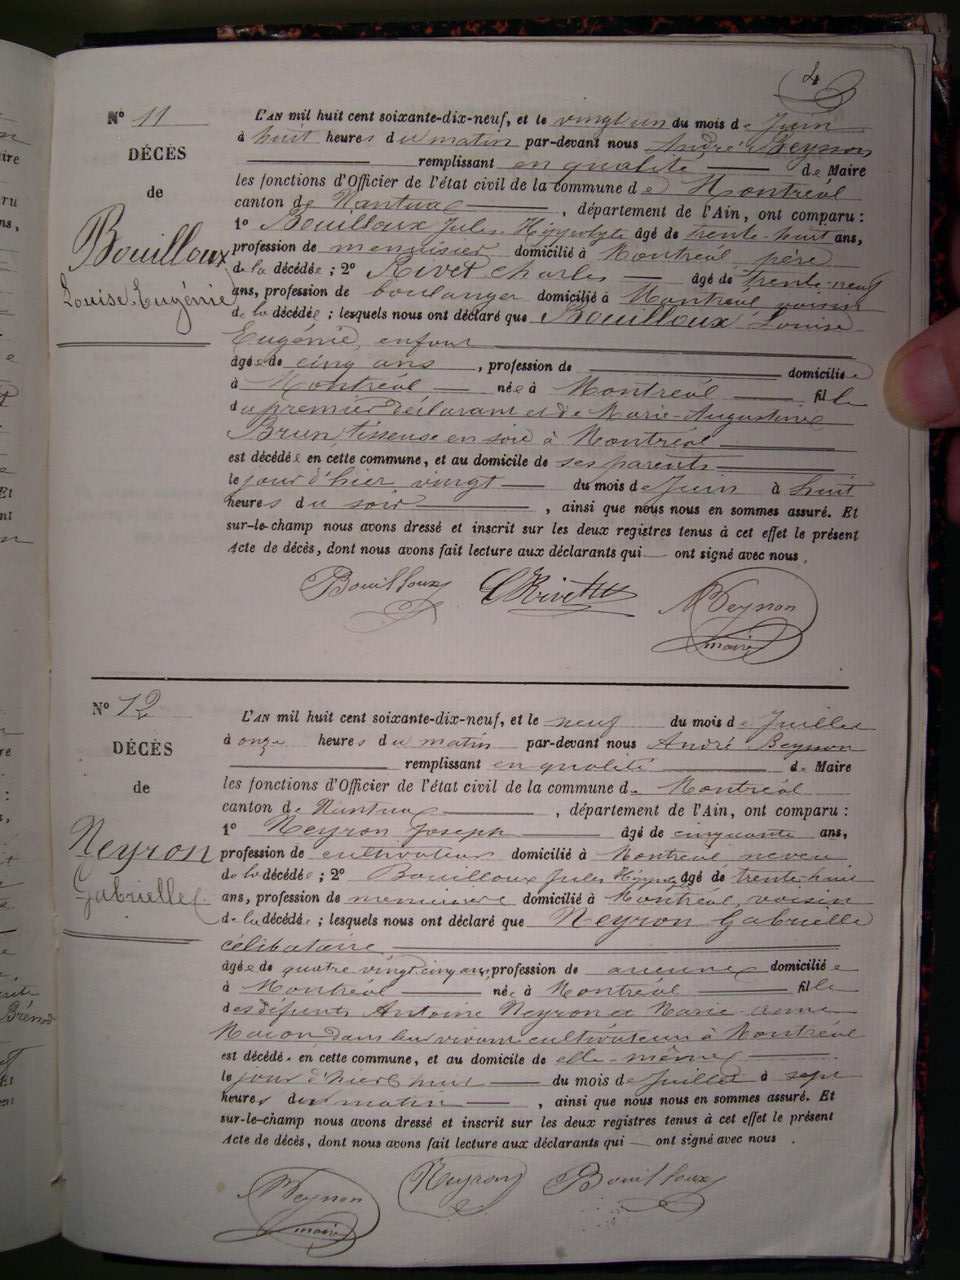 4
N° 11
DÉCÈS
de
Bouilloux
Louise Eugénie
L'AN mil huit cent soixante-dix-neuf, et le vingt un du mois de Juin
à huit heures du matin par-devant nous André Beysson
remplissant en qualité de Maire
les fonctions d'Officier de l'état civil de la commune de Montréal
canton de Nantua, département de l'Ain, ont comparu :
1° Bouilloux Jules Hippolyte âgé de trente-huit ans,
profession de menuisier domicilié à Montréal père
de la décédée ; 2° Rivet Charles âgé de trente-neuf
ans, profession de boulanger domicilié à Montréal voisin
de la décédée ; lesquels nous ont déclaré que Bouilloux Louise
Eugénie, enfant
âgée de cinq ans, profession de domiciliée
à Montréal née à Montréal fille
du premier déclarant et de Marie-Augustine
Brun tisseuse en soie à Montréal
est décédée en cette commune, et au domicile de ses parents
le jour d'hier vingt du mois de Juin à huit
heures du soir, ainsi que nous nous en sommes assuré. Et
sur-le-champ nous avons dressé et inscrit sur les deux registres tenus à cet effet le présent
Acte de décès, dont nous avons fait lecture aux déclarants qui ont signé avec nous.
Bouilloux C Rivet Beysson
maire
N° 12
DÉCÈS
de
Neyron
Gabrielle
L'AN mil huit cent soixante-dix-neuf, et le neuf du mois de Juillet
à onze heures du matin par-devant nous André Beysson
remplissant en qualité de Maire
les fonctions d'Officier de l'état civil de la commune de Montréal
canton de Nantua, département de l'Ain, ont comparu :
1° Neyron Joseph âgé de cinquante ans,
profession de cultivateur domicilié à Montréal neveu
de la décédée ; 2° Bouilloux Jules Hippolyte âgé de trente-huit
ans, profession de menuisier domicilié à Montréal, voisin
de la décédée ; lesquels nous ont déclaré que Neyron Gabrielle
célibataire
âgée de quatre vingt cinq ans, profession de aucune domiciliée
à Montréal née à Montréal fille
des défunts Antoine Neyron et Marie-Anne
dans leur vivant cultivateurs à Montréal
est décédée en cette commune, et au domicile de elle-même
le jour d'hier huit du mois de Juillet à sept
heures du matin, ainsi que nous nous en sommes assuré. Et
sur-le-champ nous avons dressé et inscrit sur les deux registres tenus à cet effet le présent
Acte de décès, dont nous avons fait lecture aux déclarants qui ont signé avec nous.
Beysson Neyron Bouilloux
maire